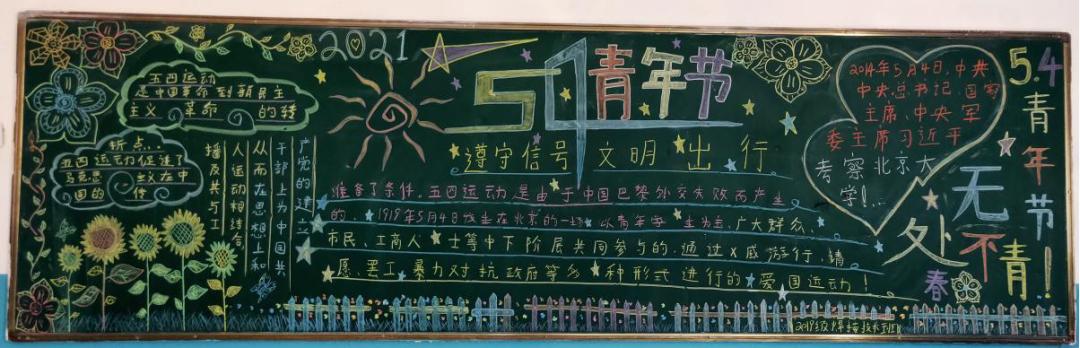 2021
54青年节
遵守信号 文明出行
五四运动
是中国革命到新民主
主义革命的转
折点...
五四运动促进了
马克思主义在中
国的传
播及其与工
人运动相结合
从而在思想上和
干部上为中国共
产党的建立
准备了条件。五四运动是由于中国巴黎外交失败而产生
的。1919年5月4日发生在北京的一场以青年学生为主,广大群众、
市民、工商人士等中下阶层共同参与的,通过示威游行、请
愿、罢工、暴力对抗政府等多种形式进行的爱国运动!
2014年5月4日,中共
中央总书记、国家
主席、中央军
委主席习近平
考察北京大
学!...
5.4青年节
无处不青春!